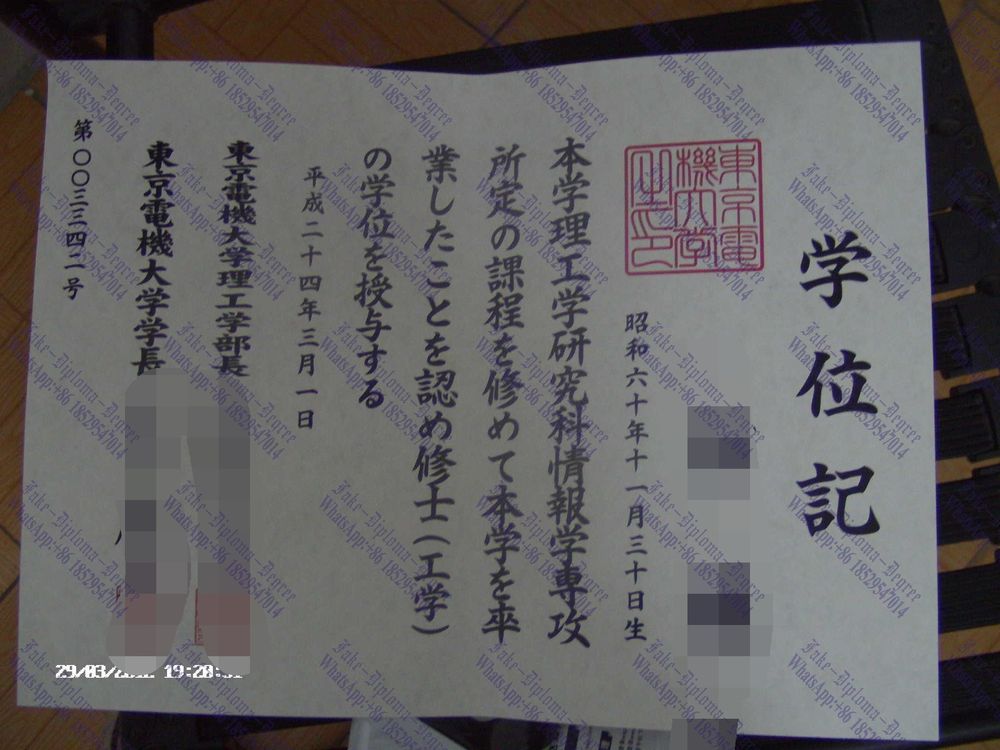 学位記
昭和六十年十一月三十日生
東京電
機大学
之印
本学理工学研究科情報学専攻
所定の課程を修めて本学を卒
業したことを認め修士(工学)
の学位を授与する
平成二十四年三月一日
東京電機大学理工学部長
東京電機大学学長
第〇〇三三四二号
Fake-Diploma-Degree
WhatsApp:+86 18529547014